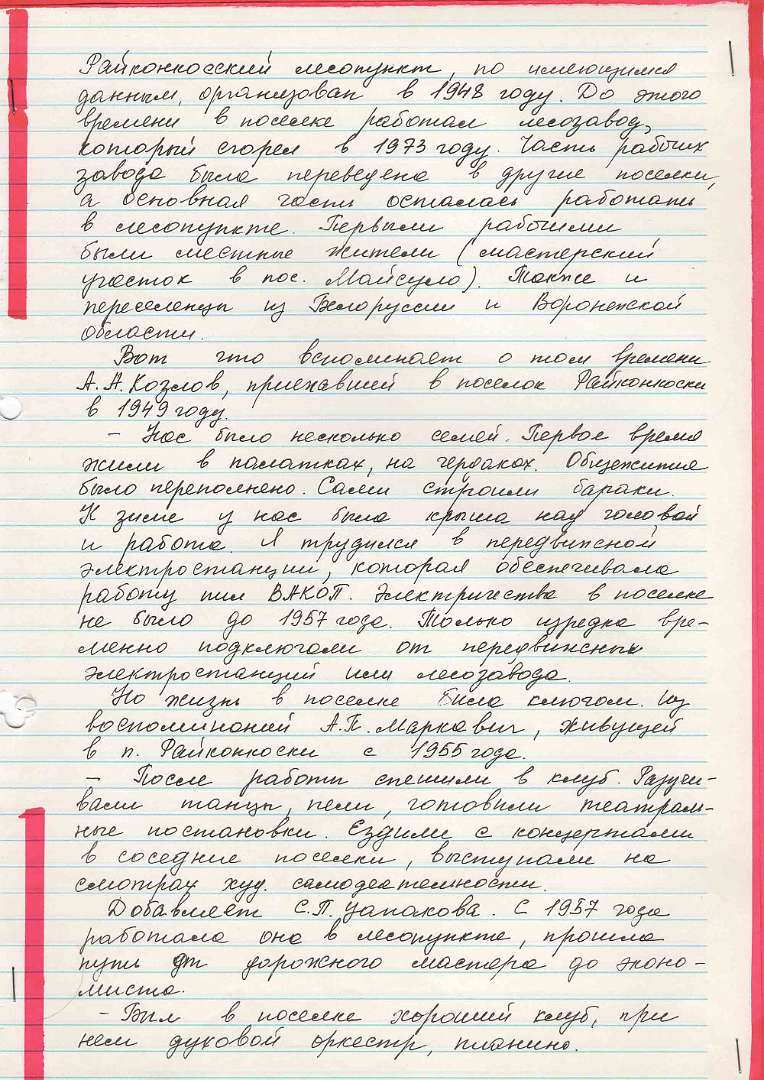 Райконкосский лесопункт, по имеющимся
данным, организован в 1948 году. До этого
времени в поселке работал лесозавод,
который сгорел в 1973 году. Часть рабочих
завода была переведена в другие поселки,
а основная часть осталась работать
в лесопункте. Первыми рабочими
были местные жители (мастерский
участок в пос. Майсула). Также и
переселенцы из Белоруссии и Воронежской
области.
Вот что вспоминает о том времени
А.А.Козлов, приехавший в поселок Райконкоски
в 1949 году.
- Нас было несколько семей. Первое время
жили в палатках, на чердаках. Общежитие
было переполнено. Сами строили бараки.
К зиме у нас была крыша над головой
и работа. Я трудился в передвижной
электростанции, которая обеспечивала
работу пил ВАКОП. Электричества в поселке
не было до 1957 года. Только изредка вре-
менно подключали от передвижных
электростанций или лесозавода.
Но жизнь в поселке била ключом. Из
воспоминаний А.П.Маркевич, живущей
в п. Райконкоски с 1955 года.
- После работы спешили в клуб. Разучи-
вали танцы, пели, готовили театраль-
ные постановки. Ездили с концертами
в соседние поселки, выступали на
смотрах худ. самодеятельности.
Добавляет С.П. Цапакова. С 1957 года
работала она в лесопункте, прошла
путь от дорожного мастера до эконо-
миста.
- Был в поселке хороший клуб, при
нем духовой оркестр, пианино.